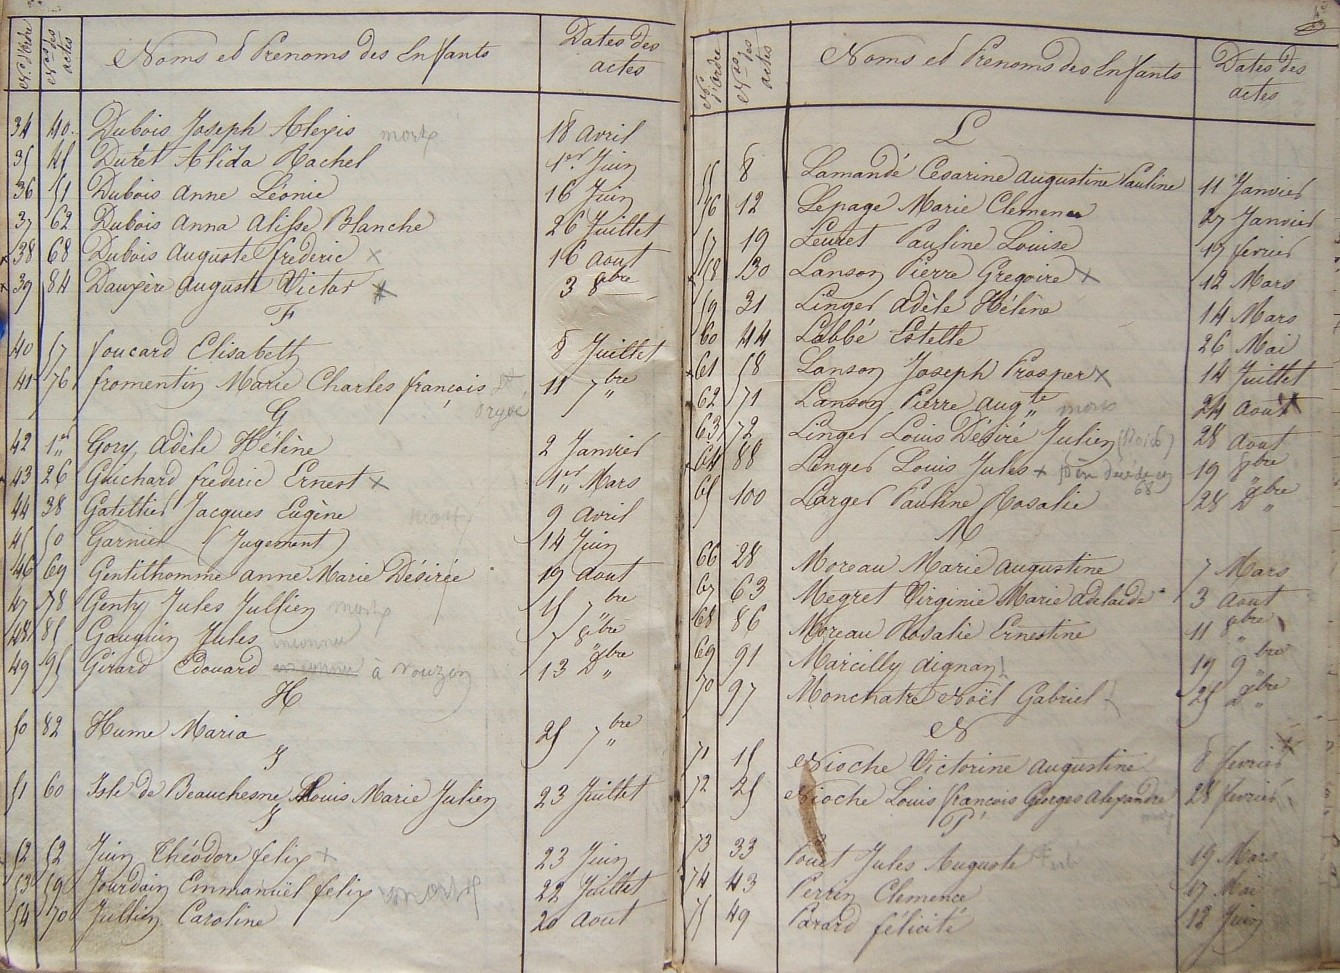 Nos d'ordre Nos des actes Noms et Prénoms des Enfants Dates des actes
34 40 Dubois Joseph Alexis mort 18 avril
35 45 Duret Alida Rachel 1er Juin
36 51 Dubois Anne Léonie 16 Juin
37 62 Dubois Anna Alisse Blanche 26 Juillet
38 68 Dubois Auguste frederic x 16 aout
39 84 Dauxère Auguste Victor x 3 8bre
F
40 57 foucard Elisabeth 8 Juillet
41 76 fromentin Marie Charles françois 11 7bre
G
42 1er Gory, Adèle Hélène 2 Janvier
43 26 Guichard frederic Ernest x 1er Mars
44 38 Gatellier Jacques Eugène mort 9 avril
45 50 Garnier (Jugement) 14 Juin
46 69 Gentilhomme anne Marie Désirée 19 aout
47 78 Genty Jules Jullien mort 15 7bre
48 85 Gauguin Jules inconnu 5 8bre
49 95 Girard Edouard inconnu à Nouzon 13 xbre
H
50 82 Hume Maria 25 7bre
I
51 60 Isle de Beauchesne Louis Marie Julien 23 Juillet
J
52 52 Juin Théodore felix x 23 Juin
53 59 Jourdain Emmanuel felix mort 22 Juillet
54 70 Jullien Caroline 20 aout
Nos d'ordre Nos des actes Noms et Prénoms des Enfants Dates des actes
L
55 8 Lamandé Césarine augustine Pauline 11 Janvier
56 12 Lepage Marie Clemence 27 Janvier
57 19 Leuret Pauline Louise 17 fevrier
58 30 Lanson Pierre Gregoire x 12 Mars
59 31 Linger adèle Hélène 14 Mars
60 44 Labbé Estelle 26 Mai
61 58 Lanson Joseph Prosper x 14 Juillet
62 71 Lanson Pierre Augte mort 24 aout
63 72 Linger Louis Désiré Julien 28 aout
64 88 Linger Louis Jules x 68 19 8bre
65 100 Larger Pauline Rosalie 28 xbre
M
66 28 Moreau Marie augustine 7 Mars
67 63 Megret Virginie Marie adelaide 3 aout
68 86 Moreau Rosalie Ernestine 11 8bre
69 91 Marcilly aignan 19 9bre
70 97 Monchatre Noël Gabriel 25 xbre
N
71 15 Nioche Victorine augustine 8 fevrier
72 25 Nioche Louis françois Georges Alexandre 28 fevrier
P
73 33 Pouet Jules Auguste 19 Mars
74 43 Perrin Clemence 17 Mai
75 49 Parard félicité 12 Juin